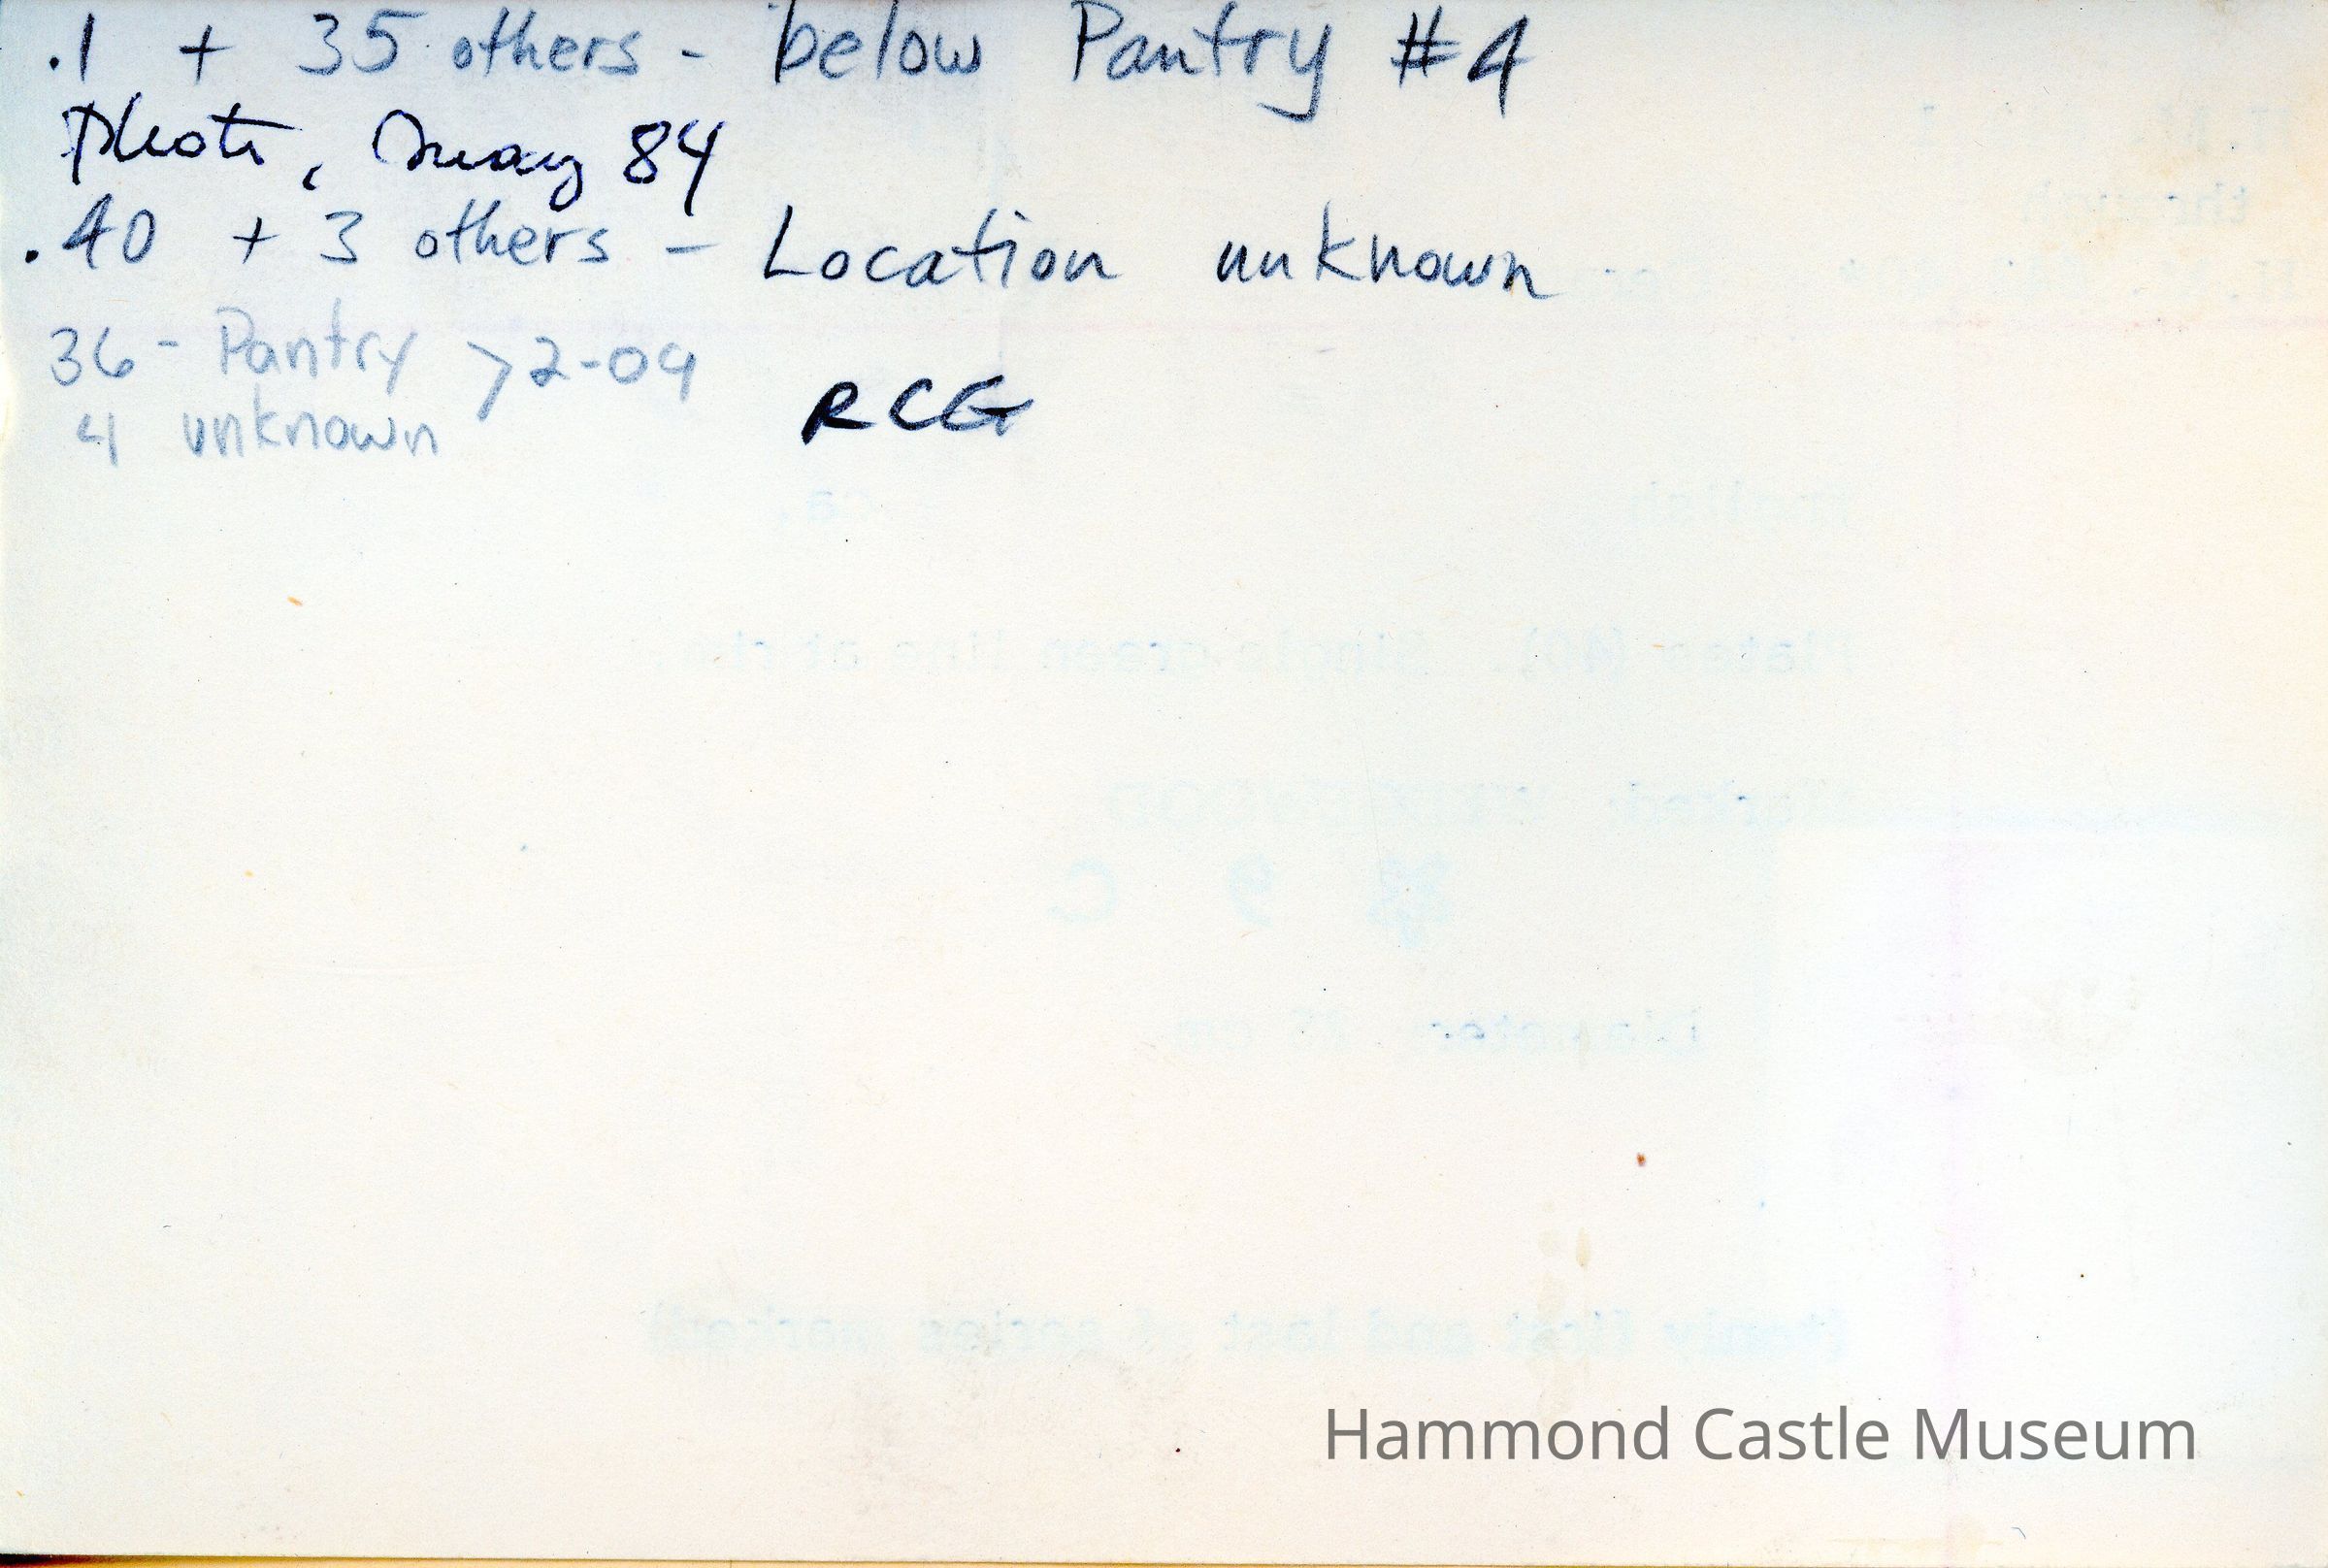 .1 + 35 others - below Pantry #4
Photo, May 84
.40 + 3 others - Location unknown
36 - Pantry > 2-09
4 unknown
RCG
Hammond Castle Museum